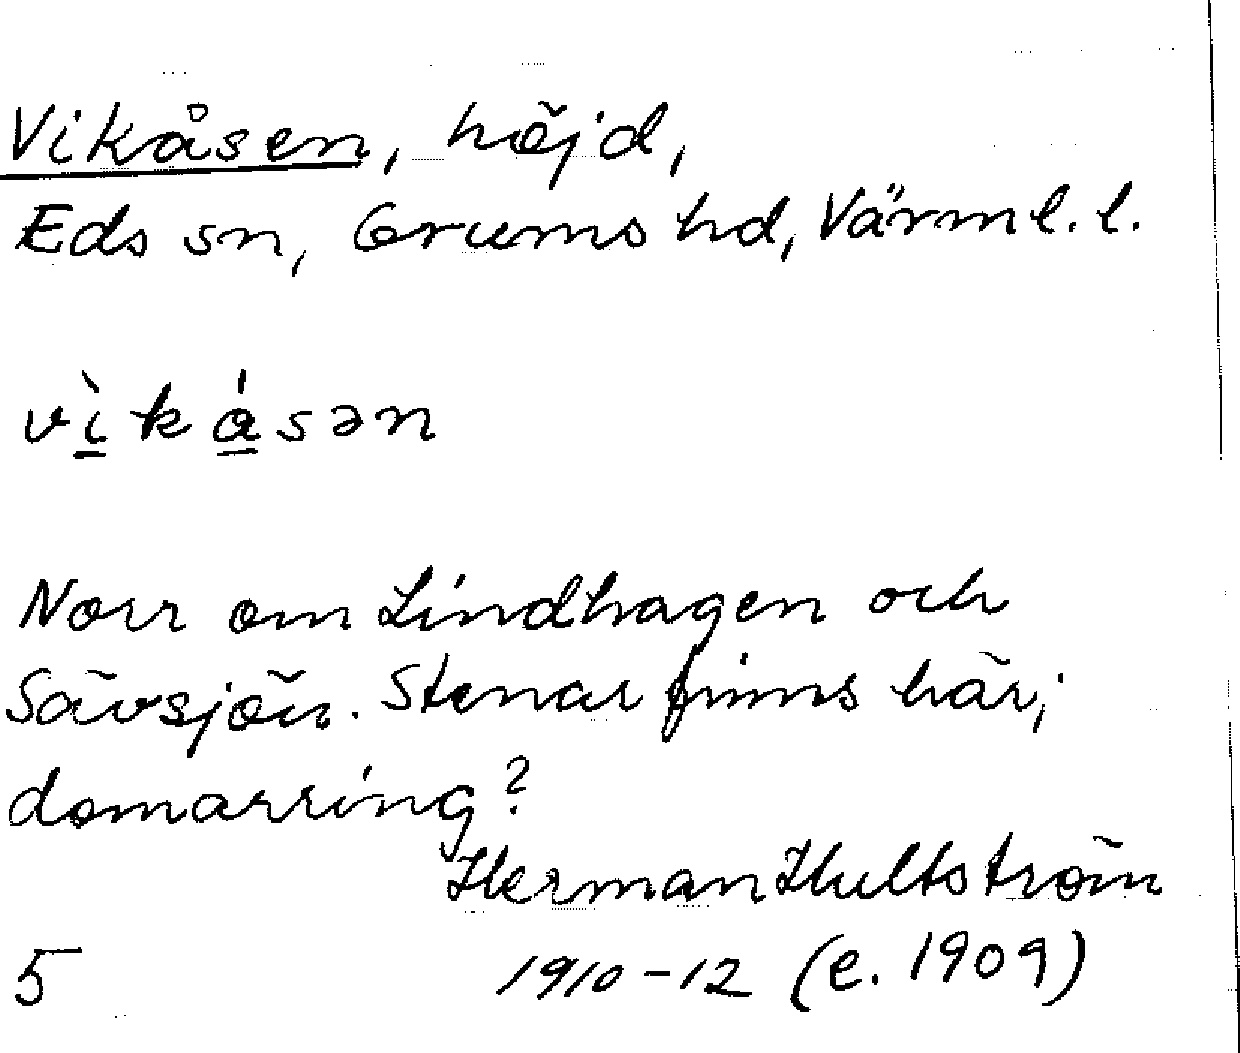 Vikåsen, höjd,
Eds sn, Grums hd, Värml. l.
vìkåsən
Norr om Lindhagen och
Sävsjön. Stenar finns här;
domarring?
Herman Hultström
1910-12 (e. 1909)
5